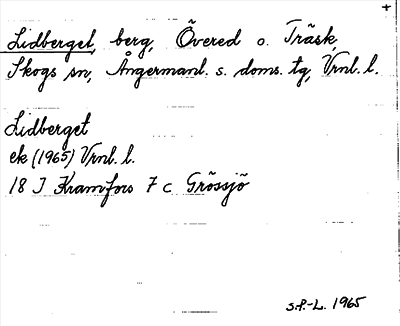 +
Lidberget, berg, Övered o. Träsk,
Skogs sn, Ångermanl. s. doms. tg, Vrnl. l.
Lidberget
ek (1965) Vrnl. l.
18 J Kramfors 7 c Grössjö
S.P.-L. 1965